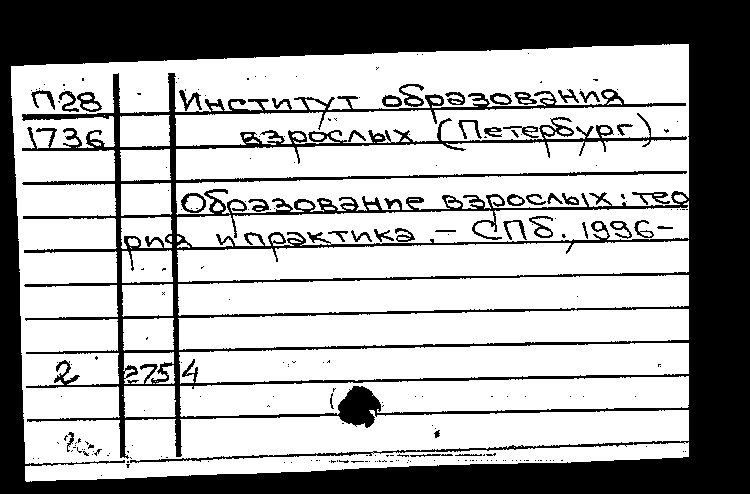 П28 Институт образования
1736 взрослых (Петербург).
Образование взрослых: тео
рия и практика. – СПб., 1996–
2 275 4